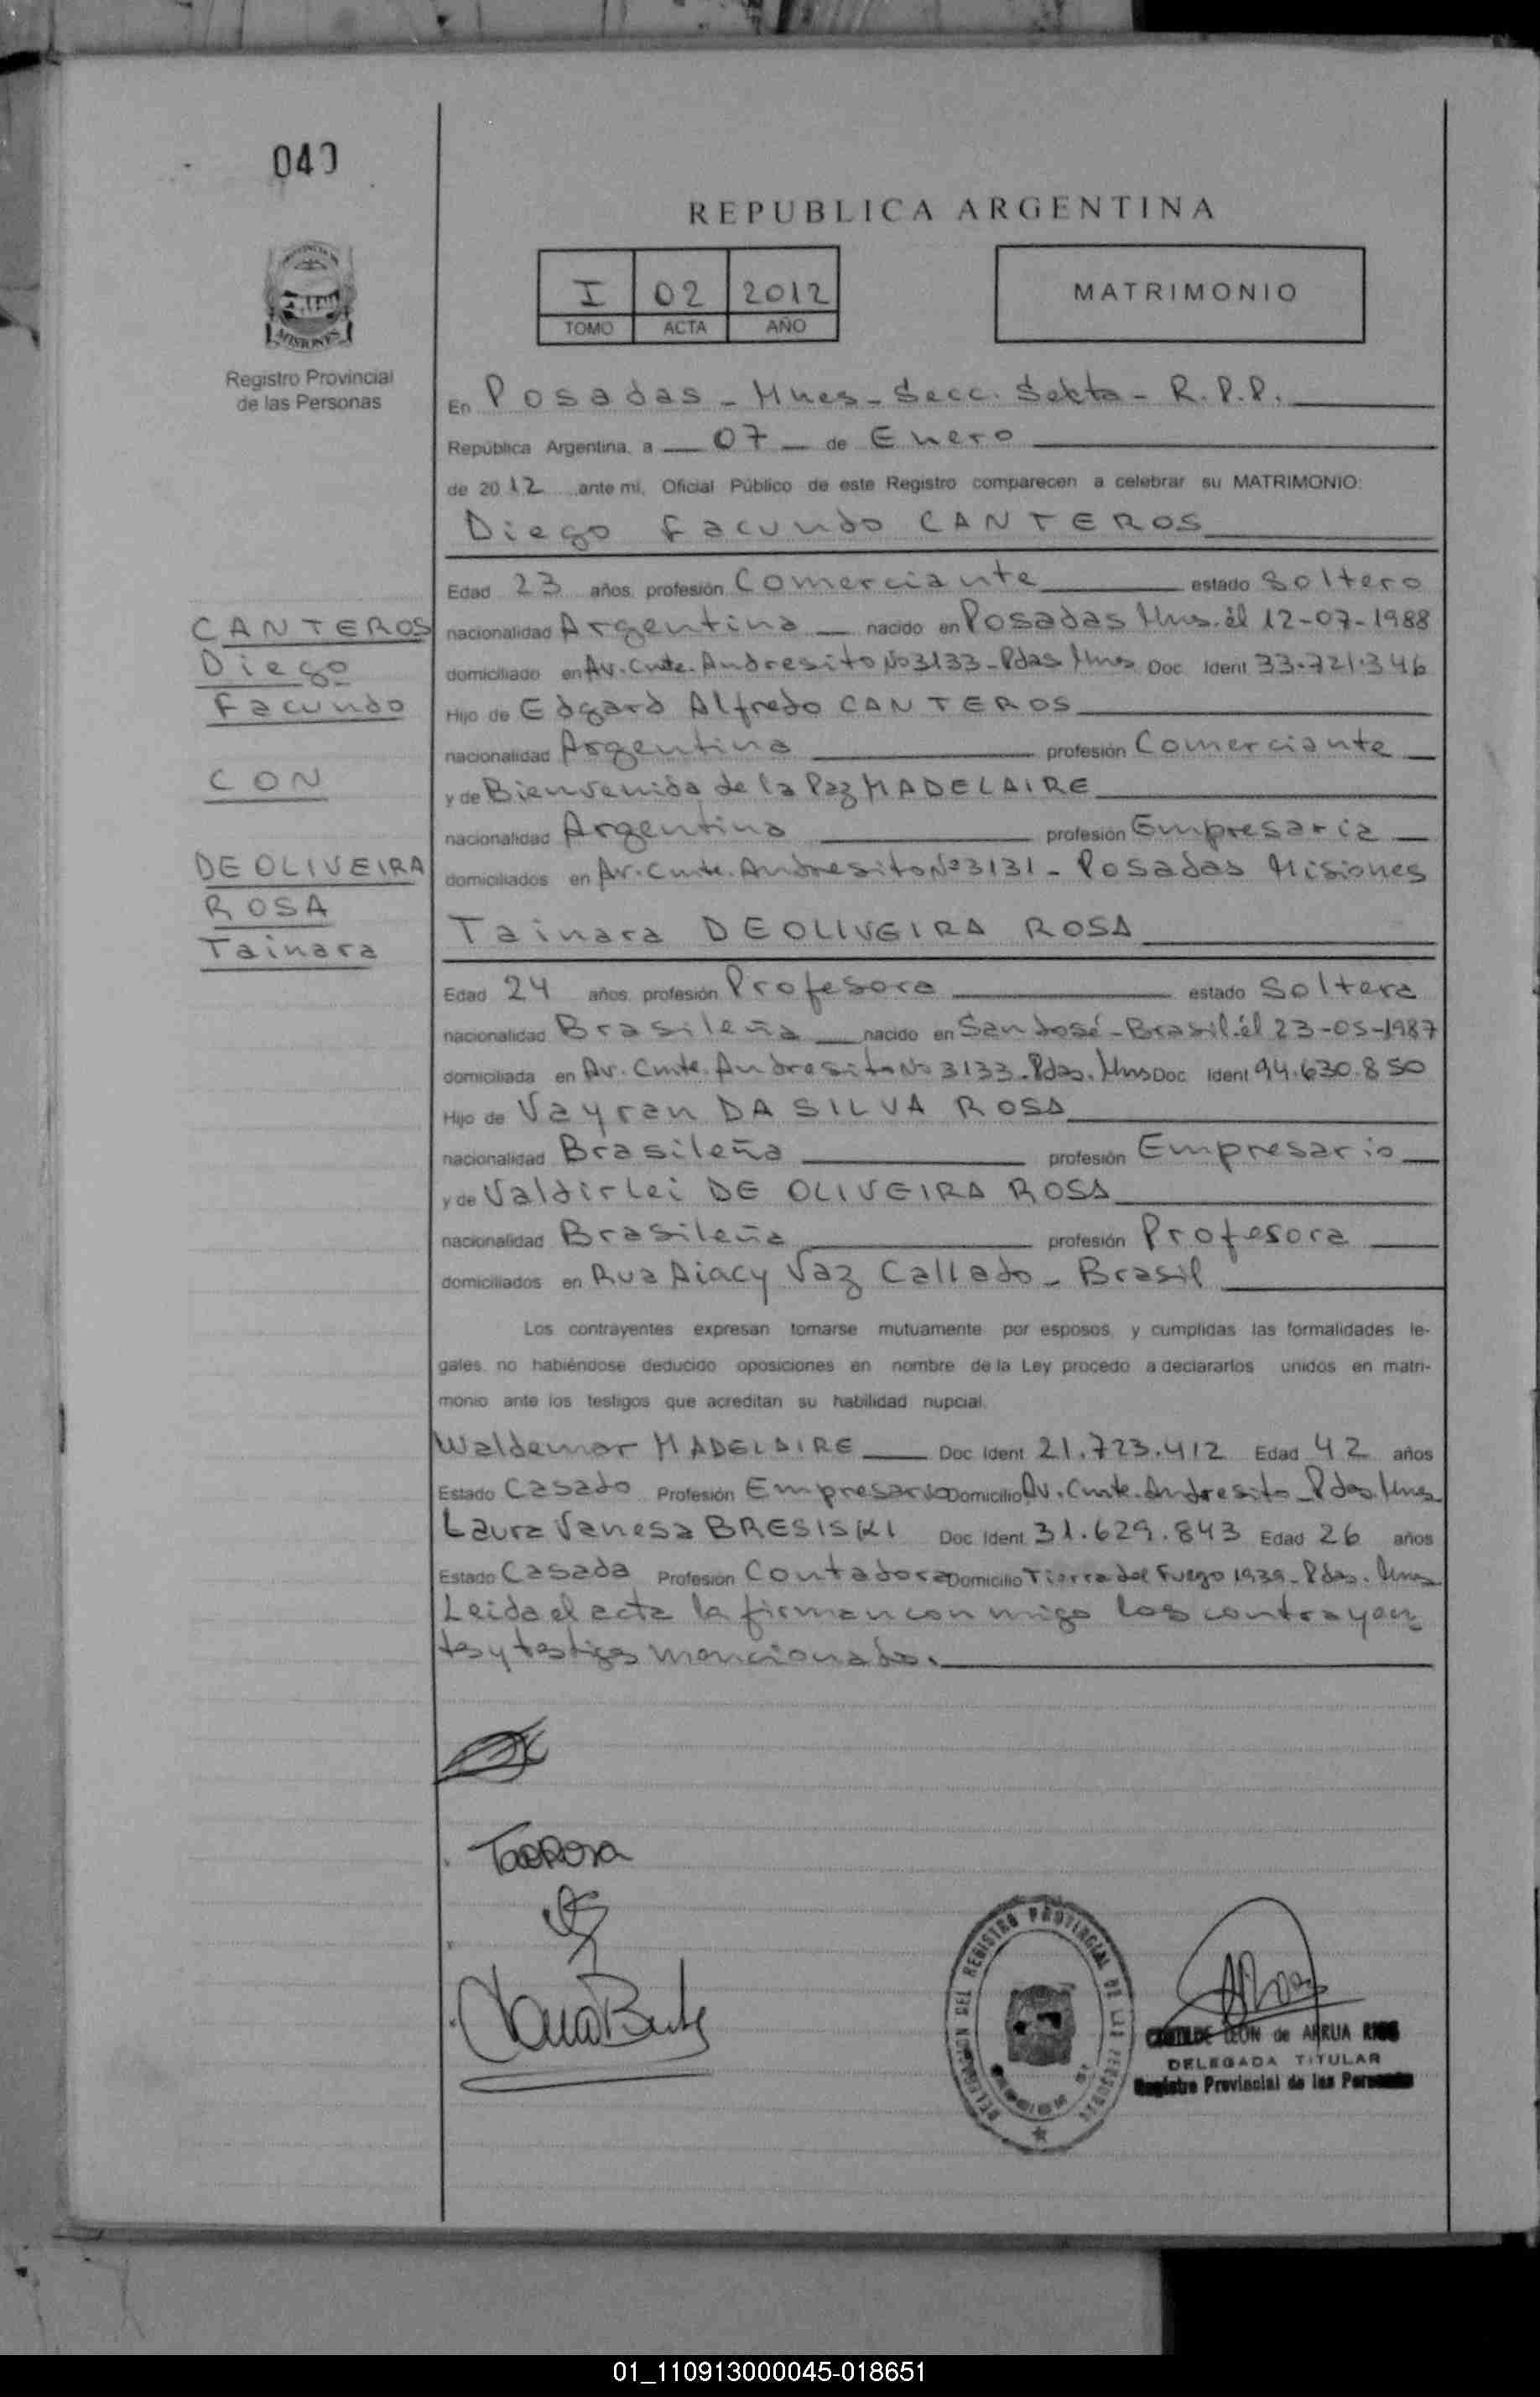 040
REPUBLICA ARGENTINA
I 02 2012
TOMO ACTA AÑO
MATRIMONIO
MISIONES
Registro Provincial
de las Personas
En Posadas - Mnes - Secc. Sexta - R.P.P.
República Argentina, a 07 de Enero
de 2012 ante mi, Oficial Público de este Registro comparecen a celebrar su MATRIMONIO:
Diego Facundo CANTEROS
Edad 23 años, profesión Comerciante estado Soltero
CANTEROS
Diego
Facundo
CON
DE OLIVEIRA
ROSA
Tainara
nacionalidad Argentina nacido en Posadas Mns. él 12-07-1988
domiciliado en Av. Cmte. Andresito No 3133 - Pdas Mnes Doc. Ident 33.721.346
Hijo de Edgard Alfredo CANTEROS
nacionalidad Argentina profesión Comerciante
y de Bienvenida de la Paz MADELAIRE
nacionalidad Argentina profesión Empresaria
domiciliados en Av. Cmte. Andresito No 3131 - Posadas Misiones
Tainara DE OLIVEIRA ROSA
Edad 24 años, profesión Profesora estado Soltera
nacionalidad Brasileña nacido en San José - Brasil. él 23-05-1987
domiciliada en Av. Cmte. Andresito No 3133 - Pdas. Mns Doc. Ident 94.630.850
Hijo de Vayran DA SILVA ROSA
nacionalidad Brasileña profesión Empresario
y de Valdirlei DE OLIVEIRA ROSA
nacionalidad Brasileña profesión Profesora
domiciliados en Rua Aiacy Vaz Callado - Brasil
Los contrayentes expresan tomarse mutuamente por esposos, y cumplidas las formalidades le-
gales, no habiéndose deducido oposiciones en nombre de la Ley procedo a declararlos unidos en matri-
monio ante los testigos que acreditan su habilidad nupcial.
Waldemar MADELAIRE Doc. Ident 21.723.412 Edad 42 años
Estado Casado Profesión Empresario Domicilio Av. Cmte. Andresito - Pdas. Mnes
Laura Vanesa BRESISKI Doc. Ident 31.629.843 Edad 26 años
Estado Casada Profesión Contadora Domicilio Tierra del Fuego 1939 - Pdas. Mnes
Leida el acta la firman con migo los contrayen
tes y testigos mencionados.
DELEGACION DEL REGISTRO PROVINCIAL DE LAS PERSONAS
LEON de ARRUA RIOS
DELEGADA TITULAR
Registro Provincial de las Personas
01_110913000045-018651